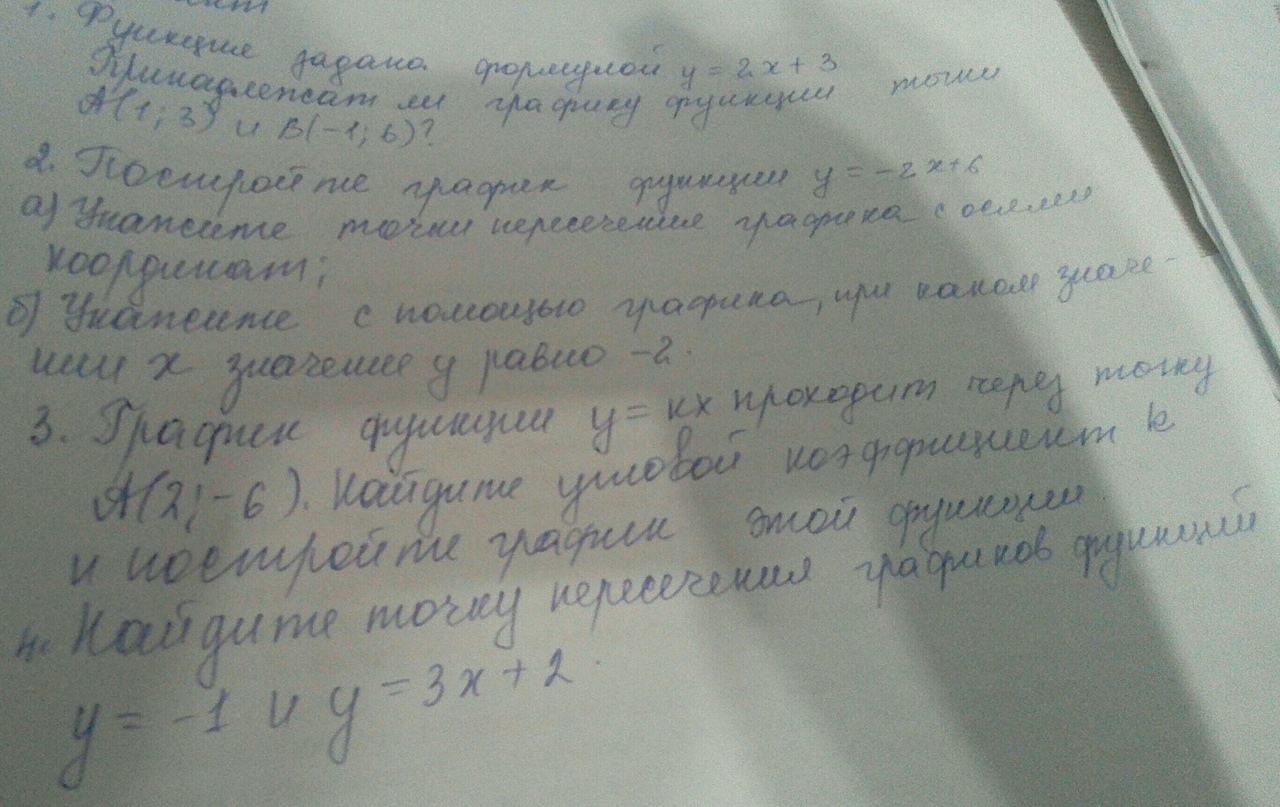 1. Функция задана формулой y = 2x + 3
Принадлежат ли графику функции точки
A(1; 3) и B(-1; 6)?
2. Постройте график функции y = -2x+6
а) Укажите точки пересечения графика с осями
координат;
б) Укажите с помощью графика, при каком значе-
нии x значение y равно -2.
3. График функции y = kx проходит через точку
A(2; -6). Найдите угловой коэффициент k
и постройте график этой функции.
4. Найдите точку пересечения графиков функций
y = -1 и y = 3x + 2.